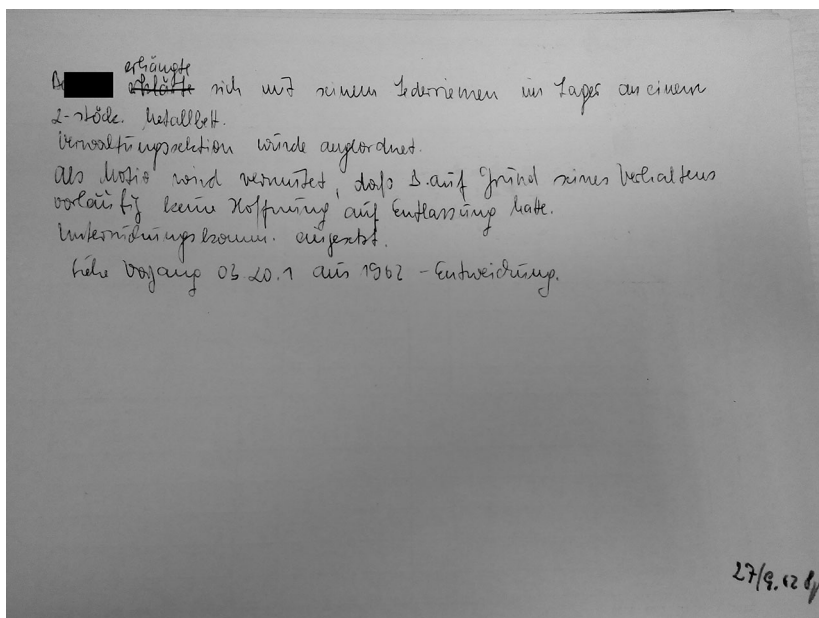 erhängte
B sich mit seinem Lederriemen im Lager an einem
2-stöck. Metallbett.
Verwaltungssektion wurde angeordnet.
Als Motiv wird vermutet, daß B. auf Grund seines Verhaltens
vorläufig keine Hoffnung auf Entlassung hatte.
Untersuchungskomm. angesetzt.
Siehe Vorgang 03.20.1 aus 1962 - Entweichung.
27/9.62